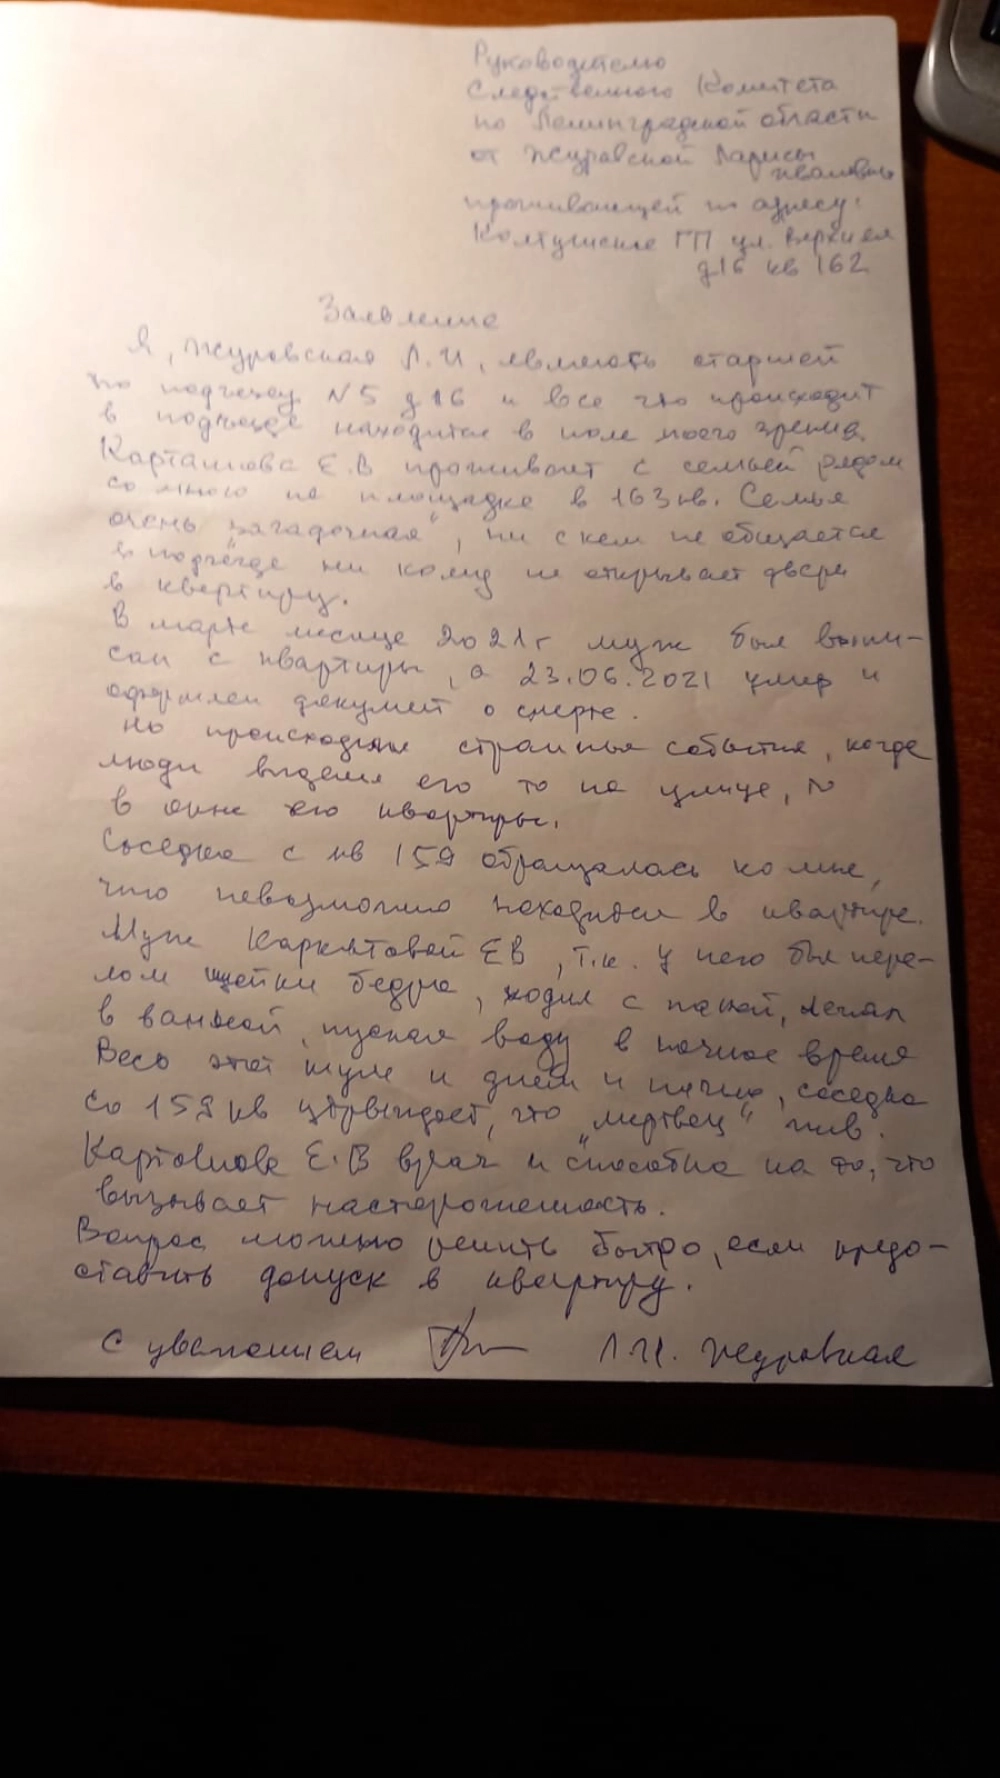 Руководителю
Следственного Комитета
по Ленинградской области
от Журавской Ларисы
Ивановны
проживающей по адресу:
Колтушское ГП ул. Верхняя
д16 кв 162
Заявление
Я, Журавская Л.И, являюсь старшей
по подъезду №5 д16 и все что происходит
в подъезде находится в поле моего зрения.
Карташова Е.В проживает с семьей рядом
со мною на площадке в 163 кв. Семья
очень "загадочная", ни с кем не общается
в подъезде ни кому не открывает двери
в квартиру.
В марте месяце 2021г муж был выпи-
сан с квартиры, а 23.06.2021 умер и
оформлен документ о смерте.
Но происходили странные события, когда
люди видели его то на улице, то
в окне его квартиры.
Соседка с кв 159 обращалась ко мне,
что невозможно находится в квартире.
Муж Карташовой ЕВ, т.к. у него был пере-
лом шейки бедра, ходил с палкой,
в ванной, пуская воду в ночное время
Весь этот шум и днем и ночью, соседка
со 159 кв утверждает, что "мертвец" жив.
Карташова Е.В врач и способна на то, что
вызывает настороженность.
Вопрос можно решить быстро, если предо-
ставить допуск в квартиру.
С уважением Л.И. Журавская